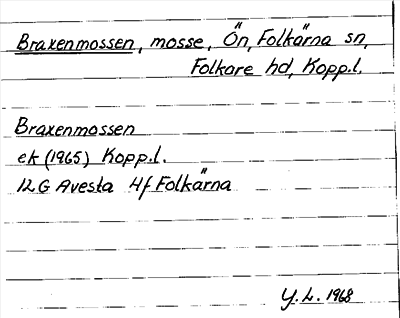 Braxenmossen, mosse, Ön, Folkärna sn,
Folkare hd, Kopp.l.
Braxenmossen
ek (1965) Kopp.l.
12G Avesta 4f Folkärna
Y.L. 1968